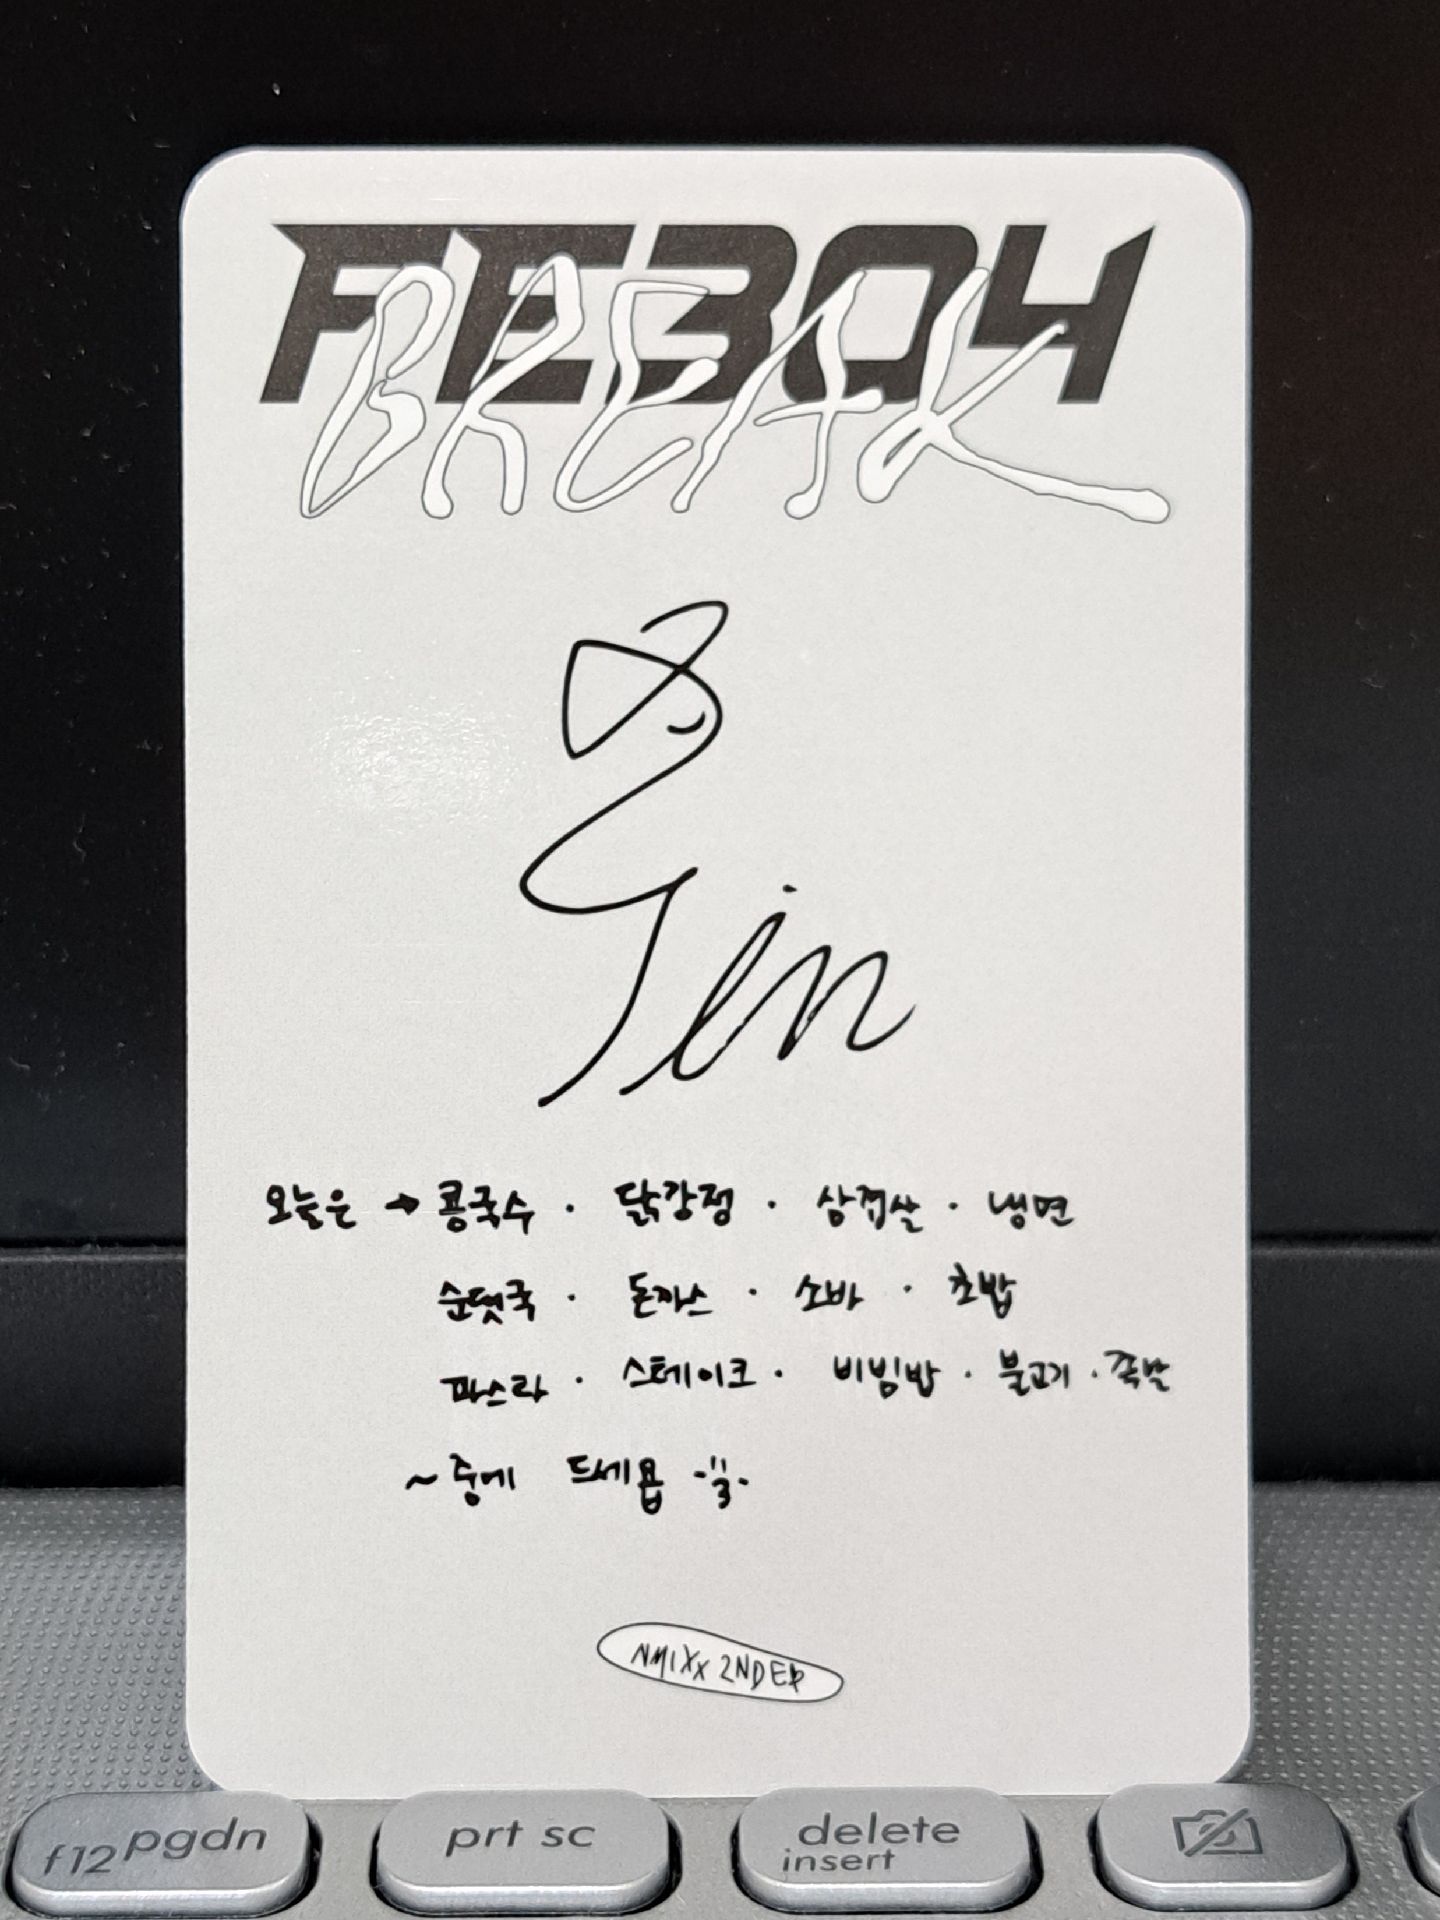 FE3O4
BREAK
Jin
오늘은 → 콩국수 · 닭강정 · 삼겹살 · 냉면
순댓국 · 돈까스 · 소바 · 초밥
파스타 · 스테이크 · 비빔밥 · 불고기 · 족발
~ 중에 드세욥
NMIXX 2ND EP
f12 pgdn
prt sc
delete
insert